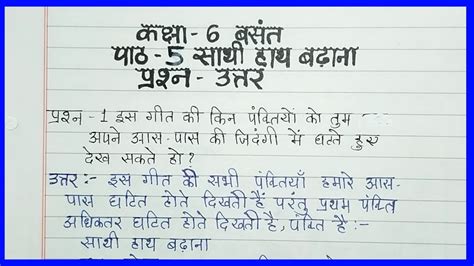 कक्षा - 6 बसंत
पाठ - 5 साथी हाथ बढ़ाना
प्रश्न - उत्तर
प्रश्न - 1 इस गीत की किन पंक्तियों को तुम
अपने आस-पास की जिंदगी में घटते हुए
देख सकते हो ?
उत्तर :- इस गीत की सभी पंक्तियाँ हमारे आस-
पास घटित होते दिखती हैं परंतु प्रथम पंक्ति
अधिकतर घटित होते दिखती है, पंक्ति है :-
साथी हाथ बढ़ाना